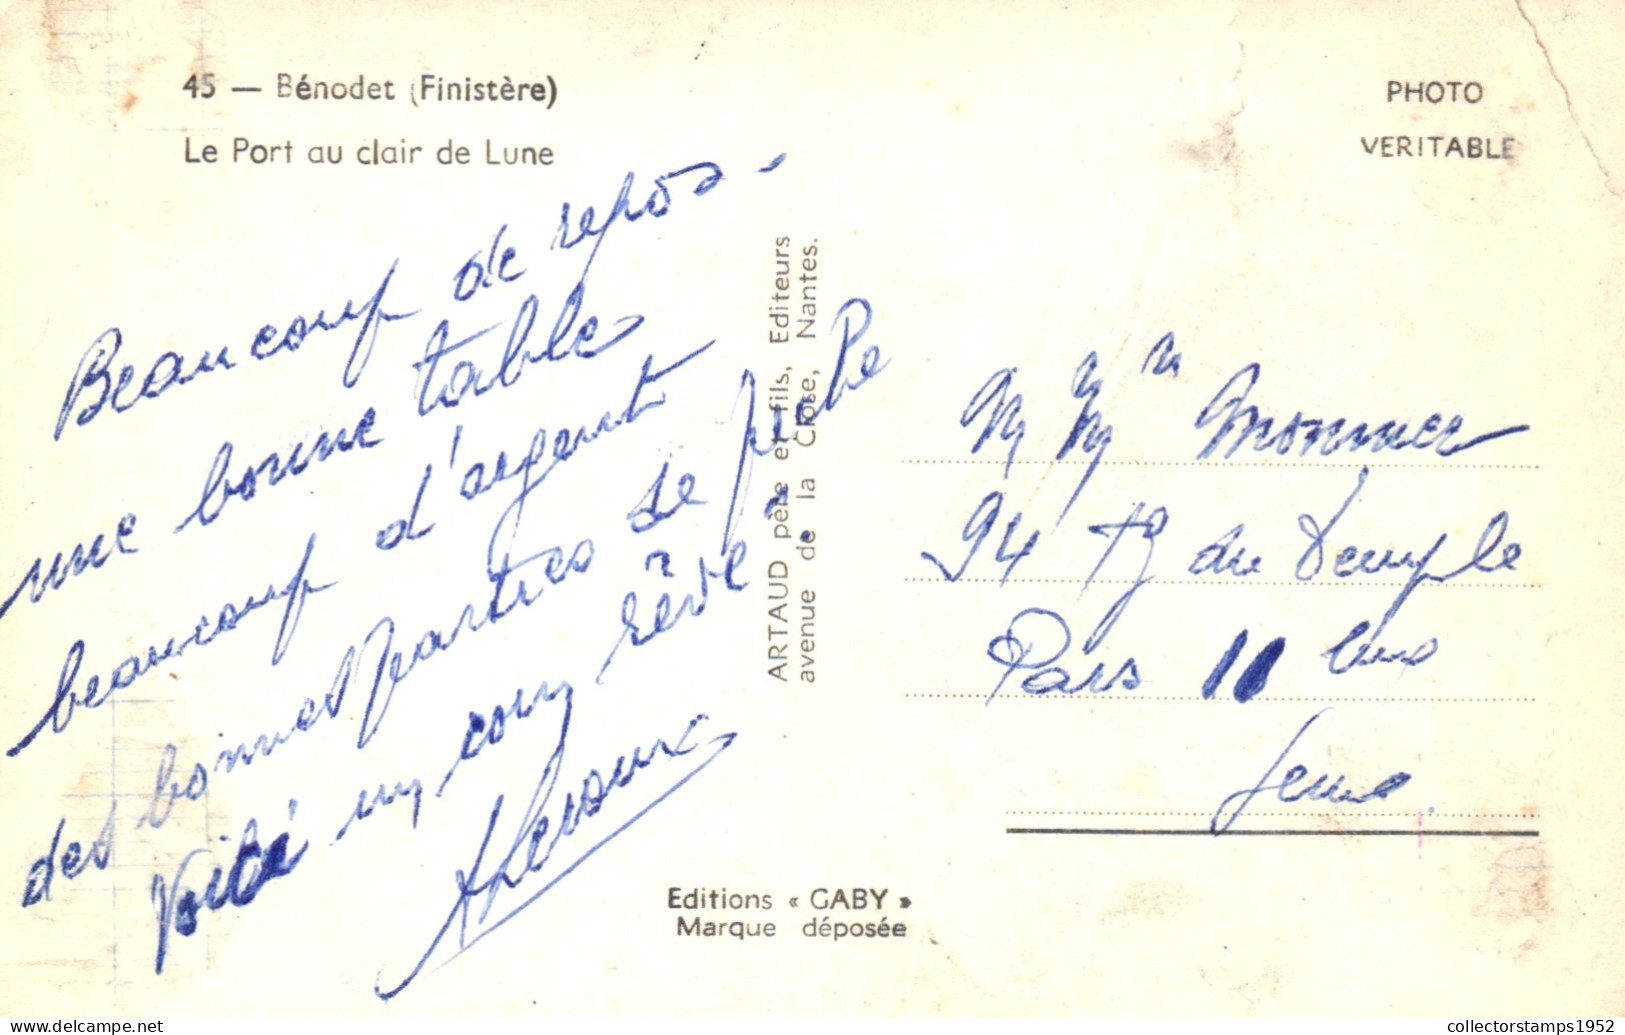 45 — Bénodet (Finistère)
Le Port au clair de Lune
PHOTO
VERITABLE
Beaucoup de repos -
une bonne table
beaucoup d'argent
des bonnes parties de
Voilà un coin rêvé.
Leroux
ARTAUD père et fils, Editeurs
avenue de la Close, Nantes.
M Mm Monnier
94 fg du Temple
Paris 11 ème
Seine.
Editions « GABY »
Marque déposée
Delcampe.net
collectorstamps1952